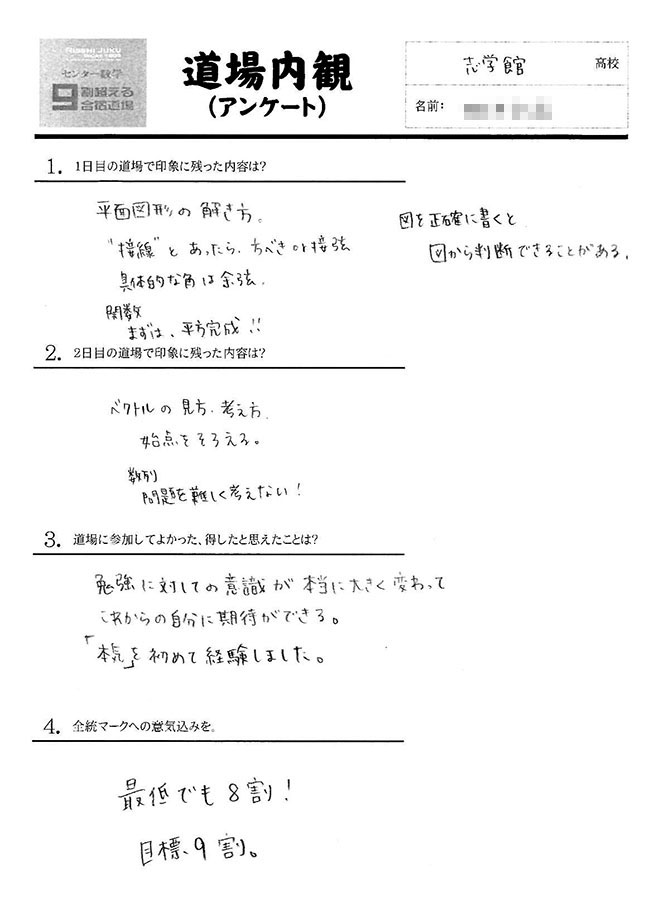 RISSHI JUKU
センター数学
9割超える
合宿道場
道場内観
(アンケート)
志学館 高校
名前:
1. 1日目の道場で印象に残った内容は?
平面図形の解き方。
"接線"とあったら、方べきor接弦
具体的な角は余弦.
関数
まずは、平方完成!!
図を正確に書くと
図から判断できることがある。
2. 2日目の道場で印象に残った内容は?
ベクトルの見方.考え方.
始点をそろえる。
数列
問題を難しく考えない!
3. 道場に参加してよかった、得したと思えたことは?
勉強に対しての意識が本当に大きく変わって
これからの自分に期待ができる。
「本気」を初めて経験しました。
4. 全統マークへの意気込みを。
最低でも8割!
目標、9割。